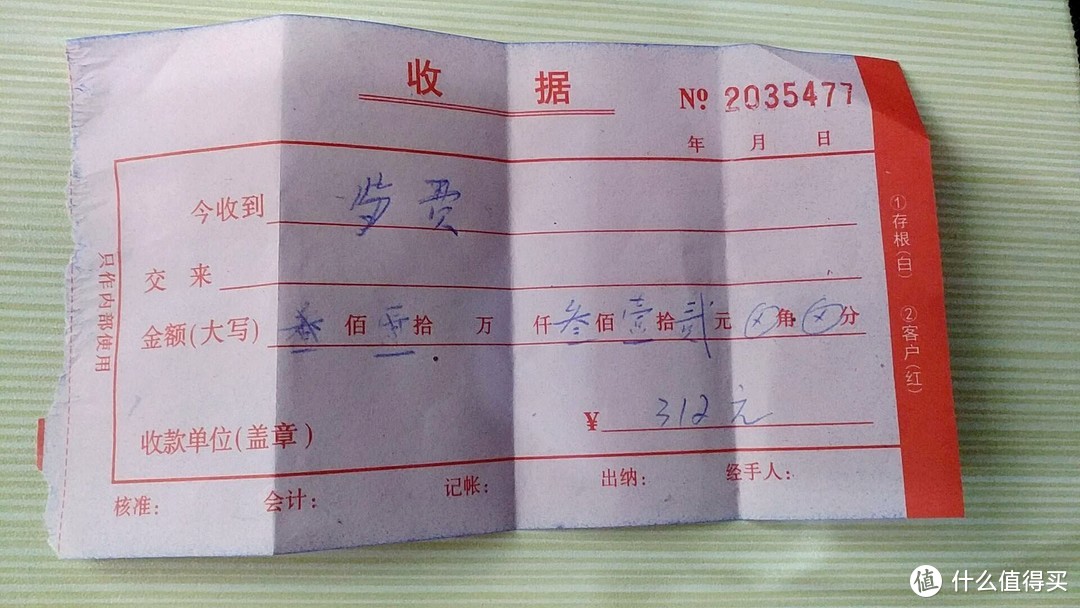 收 据
№ 2035477
年 月 日
今收到 费
交 来
金额(大写) 佰 拾 万 仟叁佰壹拾贰元 ⊗角 ⊗分
¥ 312元
收款单位(盖章)
核准: 会计: 记帐: 出纳: 经手人:
只作内部使用
①存根(白) ②客户(红)
值 什么值得买